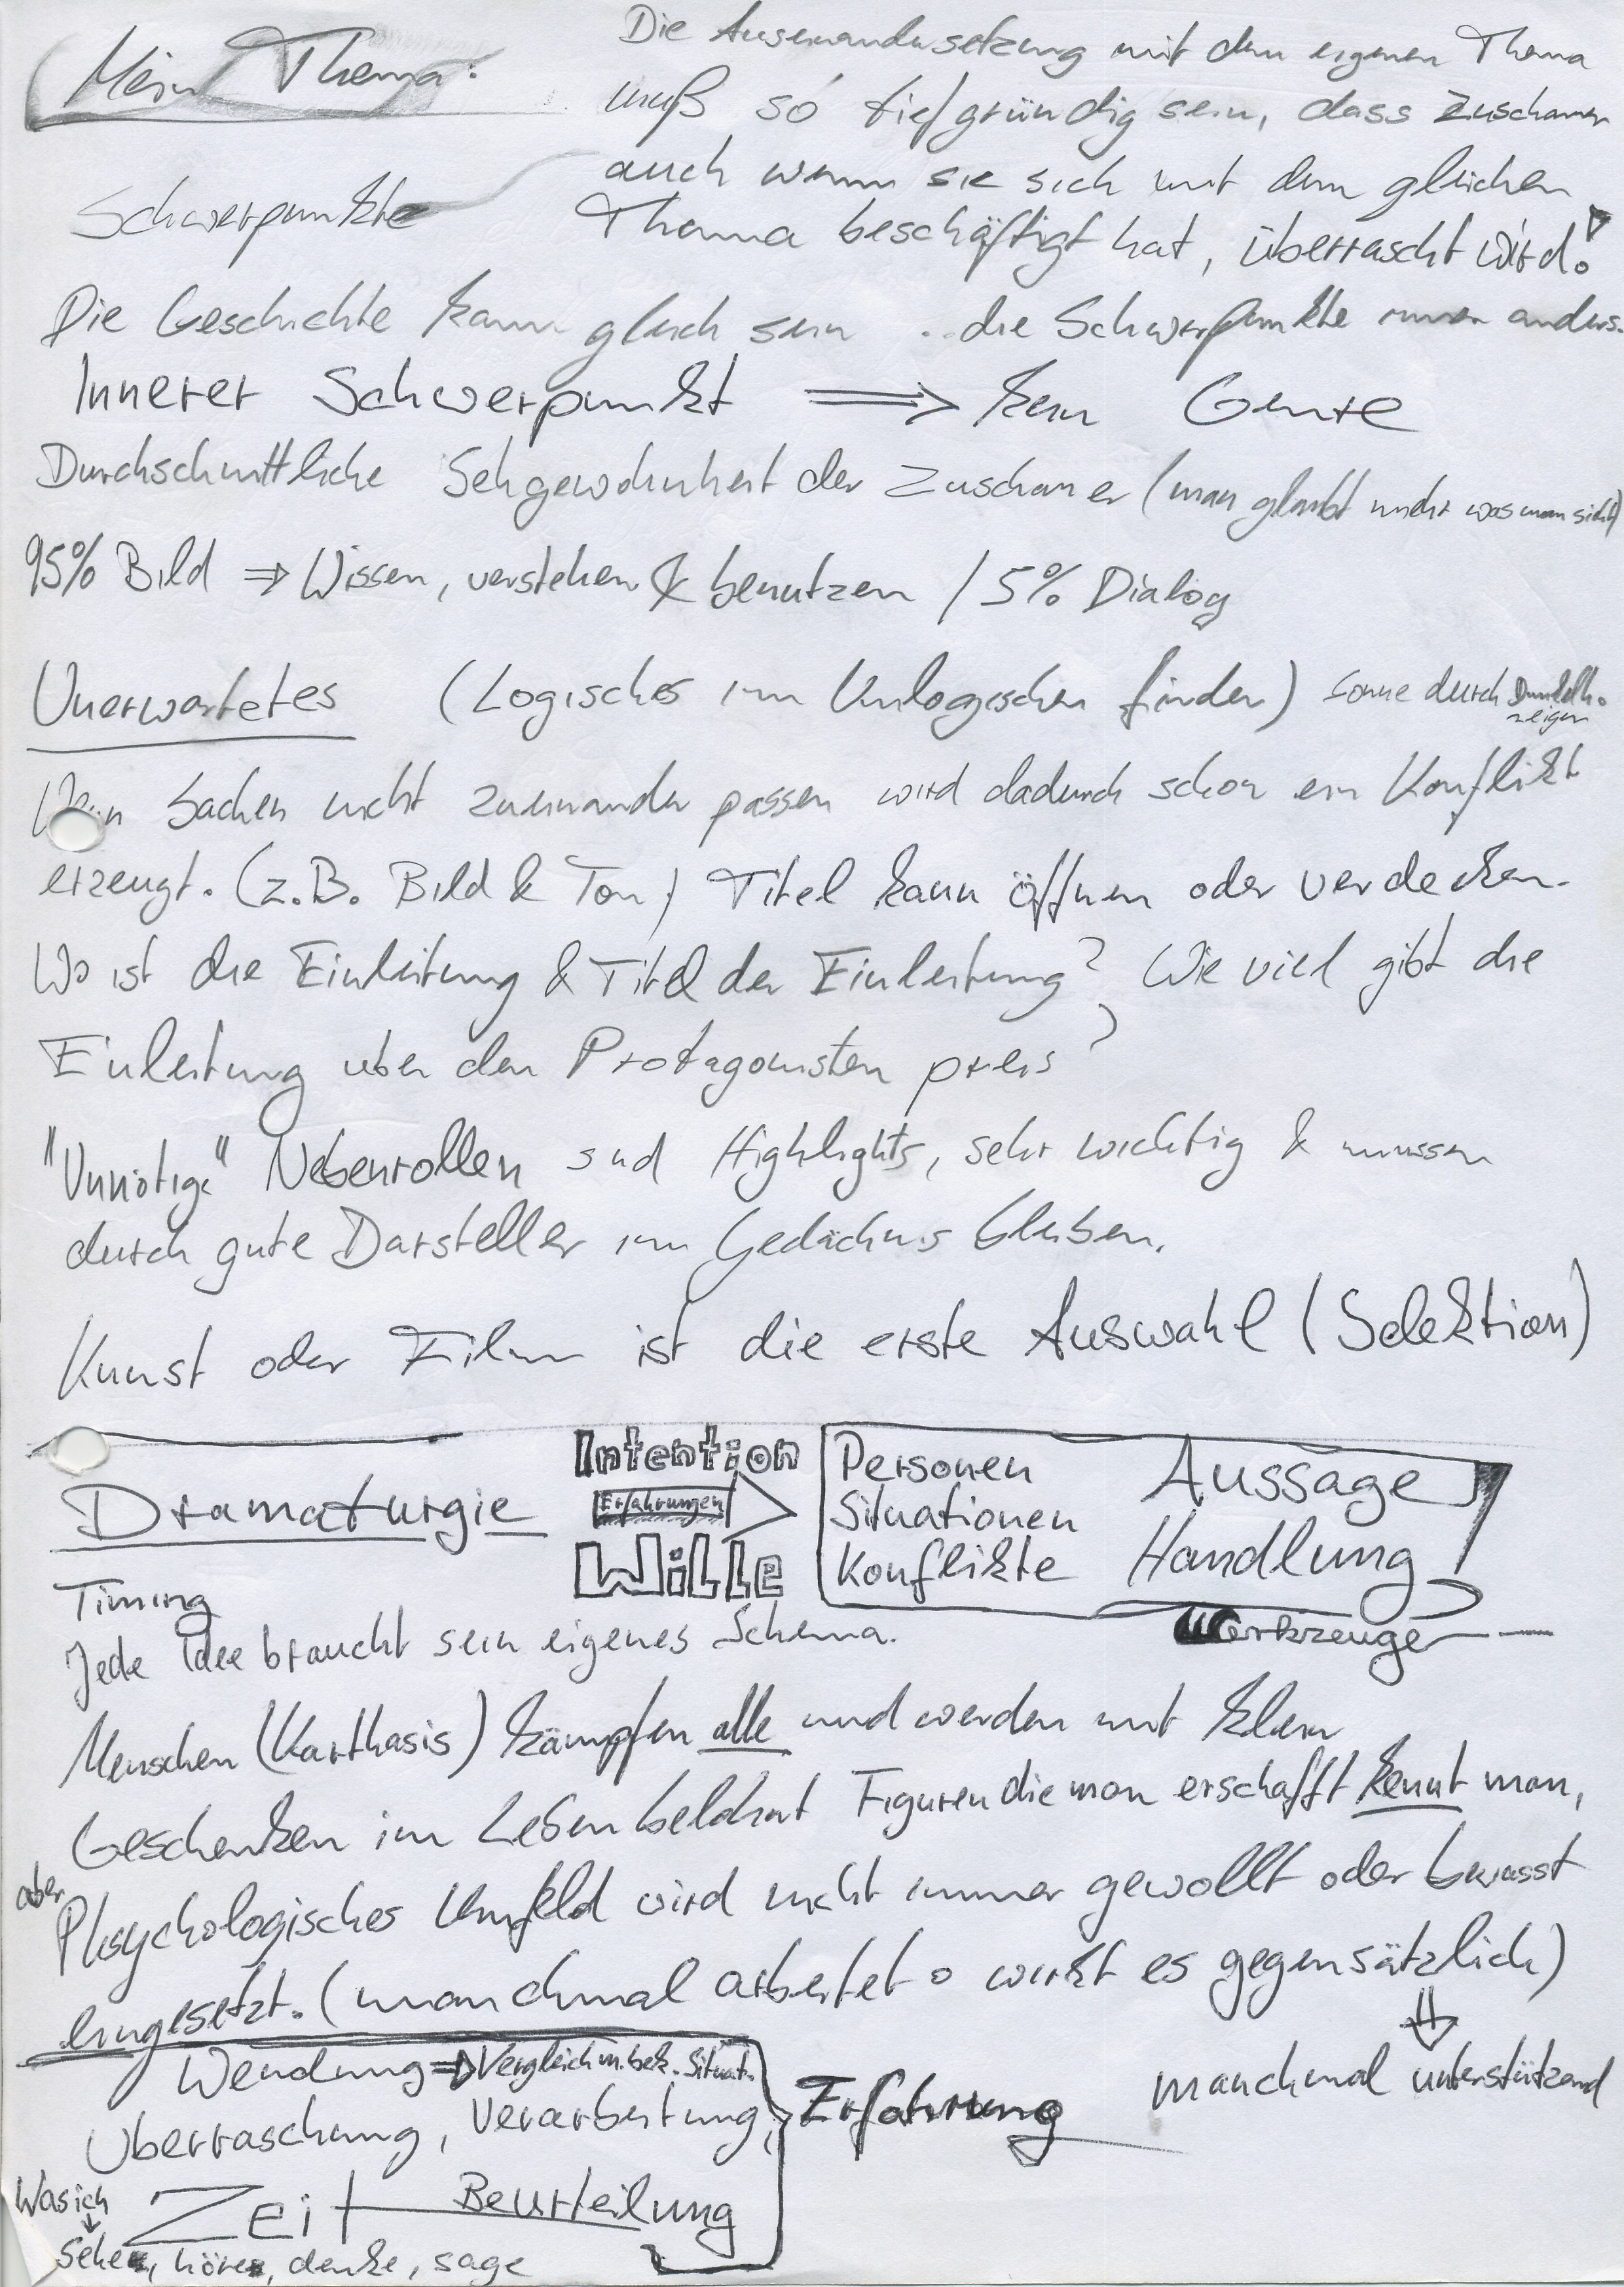 Mein Thema:
Die Auseinandersetzung mit dem eigenen Thema
muß so tiefgründig sein, dass Zuschauer
auch wenn sie sich mit dem gleichen
Thema beschäftigt hat, überrascht wird!
Schwerpunkte
Die Geschichte kann gleich sein ... die Schwerpunkte immer anders.
Innerer Schwerpunkt ⇒ kein Genre
Durchschnittliche Sehgewohnheit der Zuschauer (man glaubt nicht was man sieht)
95% Bild ⇒ Wissen, verstehen & benutzen / 5% Dialog
Unerwartetes (Logisches im Unlogischen finden) Sonne durch Dunkelh.
zeigen
Wenn Sachen nicht zueinander passen wird dadurch schon ein Konflikt
erzeugt. (z.B. Bild & Ton) Titel kann öffnen oder verdecken.
Wo ist die Einleitung & Titel der Einleitung? Wie viel gibt die
Einleitung über den Protagonisten preis?
"Unnötige" Nebenrollen sind Highlights, sehr wichtig & müssen
durch gute Darsteller im Gedächnis bleiben.
Kunst oder Film ist die erste Auswahl (Selektion)
Dramaturgie
Intention
Erfahrungen
Wille
Personen
Situationen
Konflikte
Aussage
Handlung
Werkzeuge
Timing
Jede Idee braucht sein eigenes Schema.
Menschen (Karthasis) kämpfen alle und werden mit klein
Geschenken im Leben belohnt Figuren die man erschafft kennt man,
aber
Phsychologisches Umfeld wird nicht immer gewollt oder bewusst
eingesetzt. (manchmal arbeitet o wirkt es gegensätzlich)
⇓
manchmal unterstützend
Wendung ⇒ Vergleich m. bek. Situat.
Überraschung, Verarbeitung, Erfahrung
Zeit Beurteilung
Was ich
↓
Sehe, höre, denke, sage